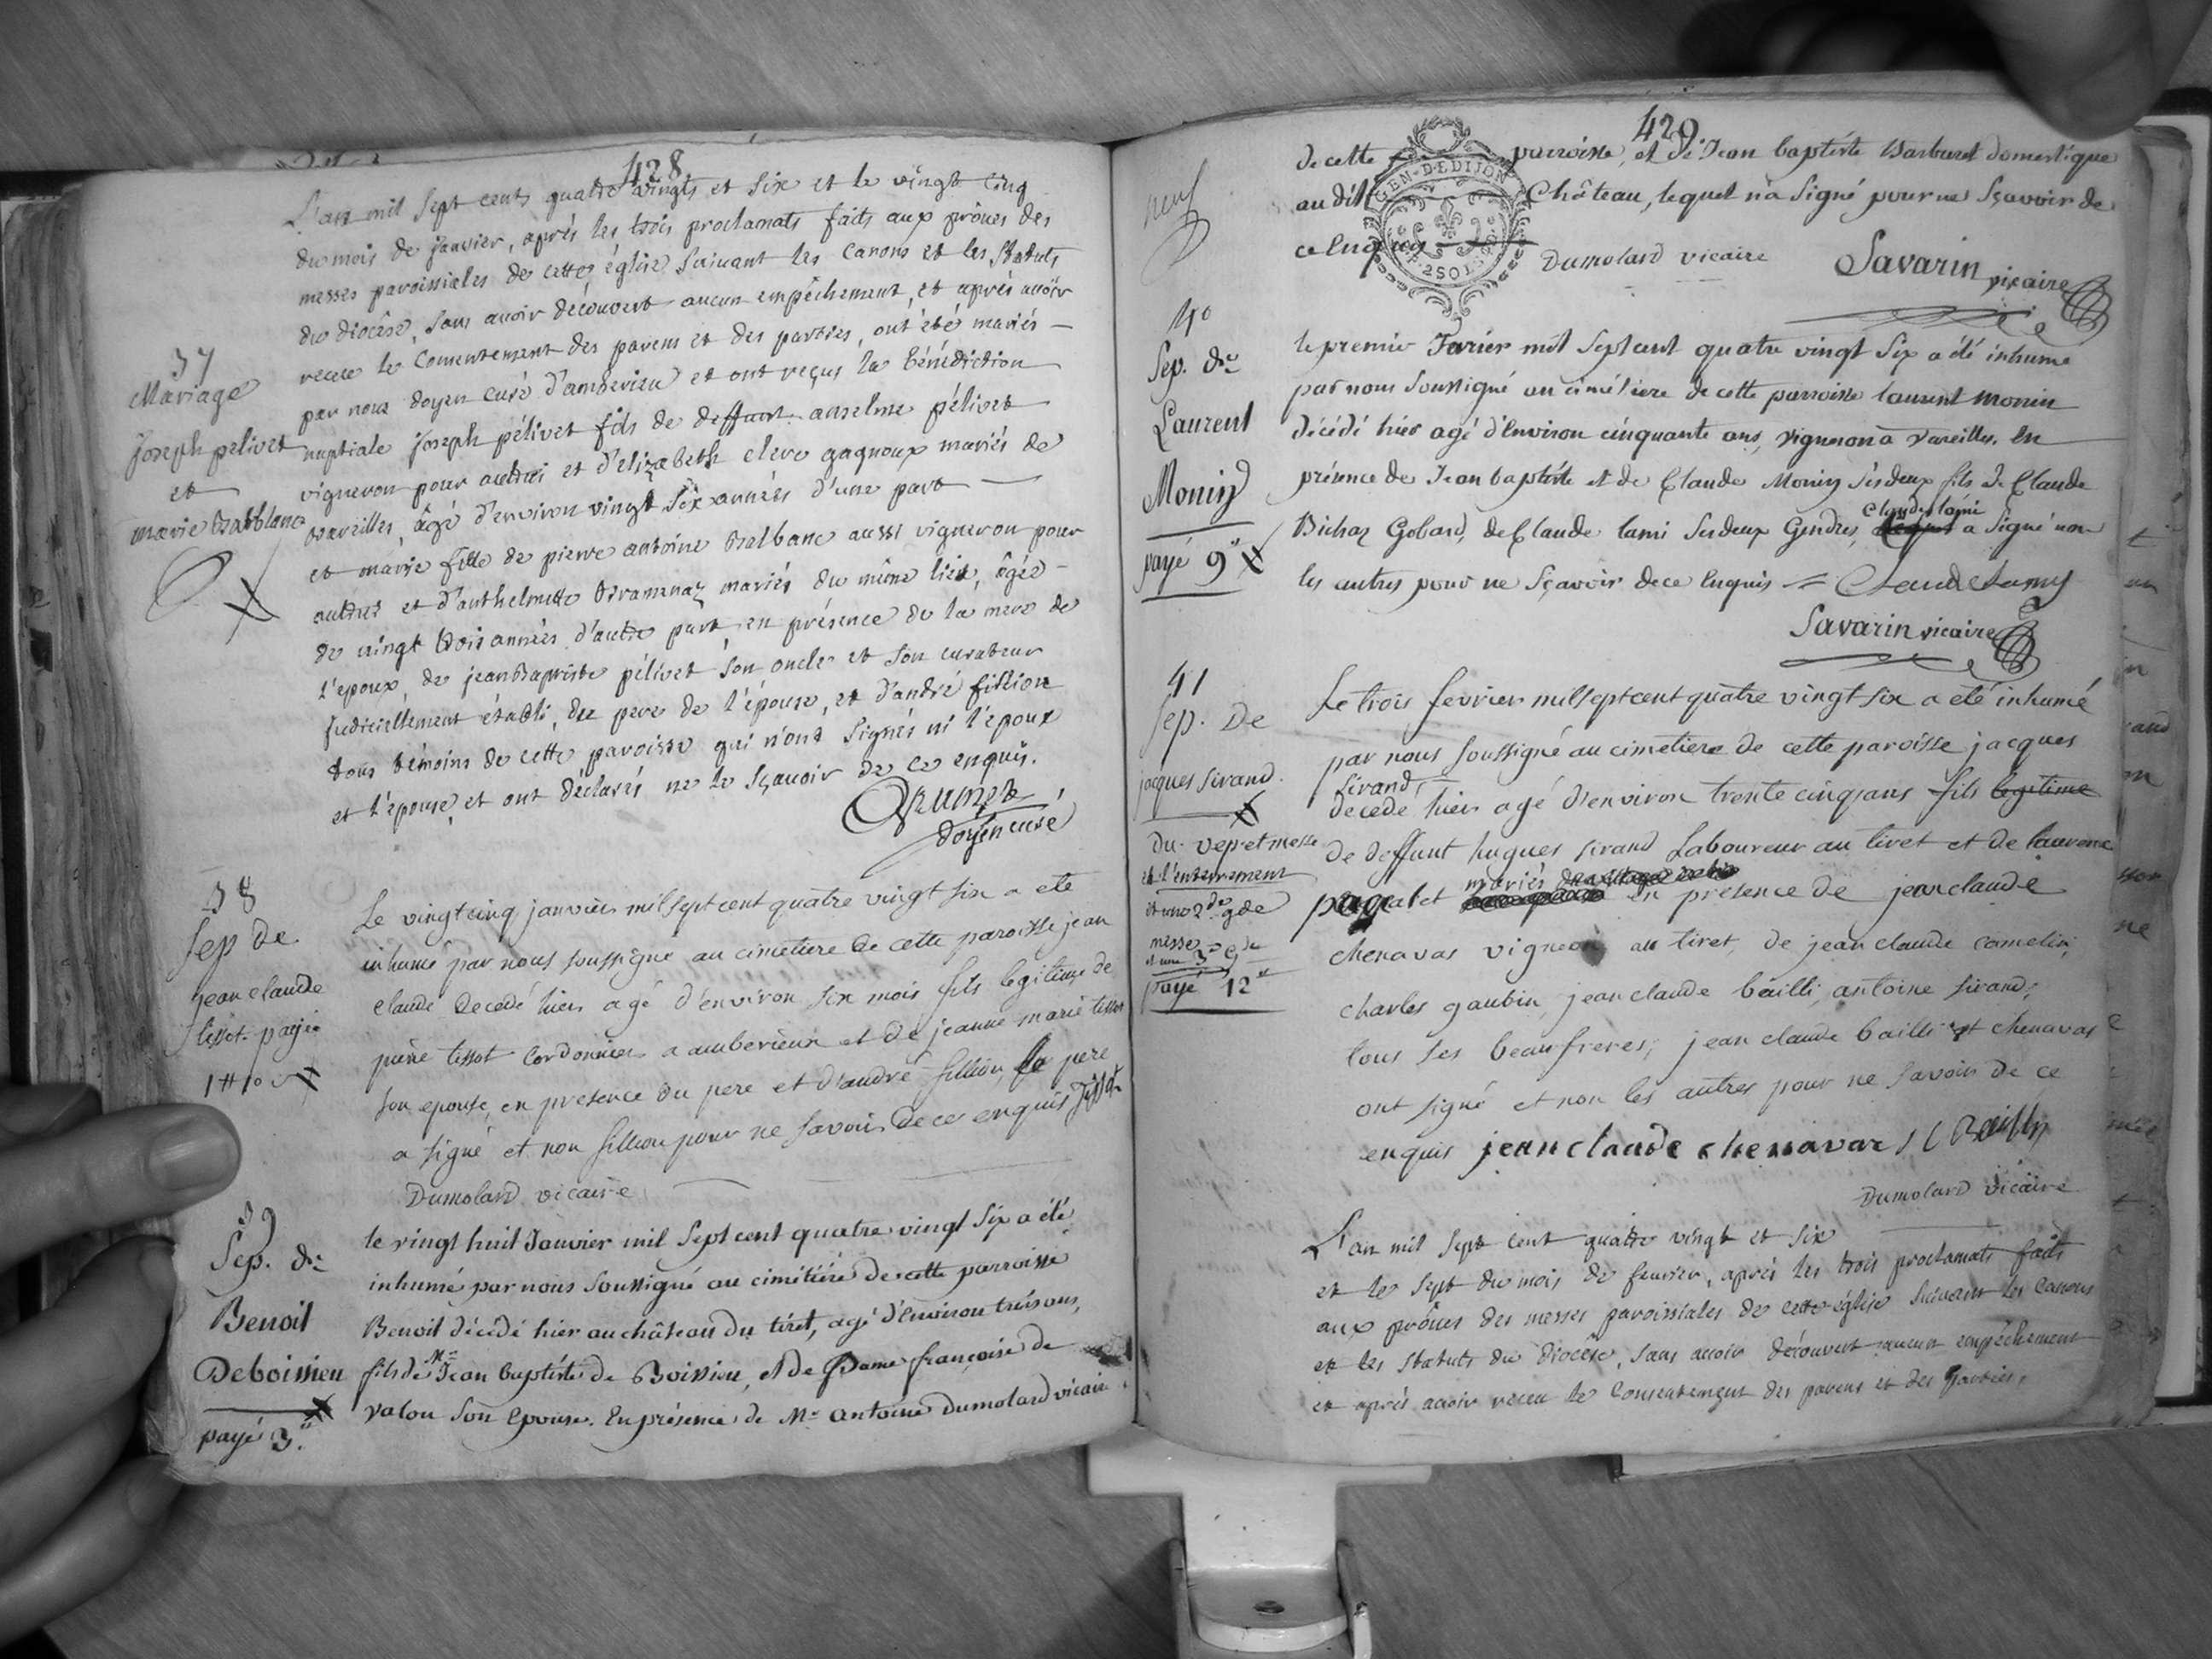 428
L'an mil sept cents quatre vingts et six et le vingt cinq
du mois de janvier, après les trois proclamats faits aux prônes des
messes paroissiales de cette église suivant les canons et les statuts
du diocêse, sans avoir découvert aucun empêchement, et après avoir
receu le consentement des parens et des parties, ont été mariés
37
Mariage
joseph pelivet
et
marie Balblanc
par nous doyen curé d'amberieu et ont reçus la bénédiction
nuptiale joseph pélivet fils de deffunt anselme pélivet
vigneron pour autrui et d'elizabeth cleve gagnoux mariés de
Vareilles, âgé d'environ vingt six années d'une part
et marie fille de pierre antoine Balbanc aussi vigneron pour
autrui et d'anthelmette Bramenaz mariés du même lieu, âgée
de vingt trois années d'autre part, en présence de la mere de
l'epoux, de jean Baptiste pélivet son oncle et son curateur
judiciellement établi, du pere de l'épouse, et d'andré fillion
tous témoins de cette paroisse qui n'ont signés ni l'epoux
et l'epouse, et ont déclarés ne le sçavoir de ce enquis.
doyen curé
38
Sep de
jean claude
tissot. payé
1# 10 s
Le vingt cinq janvier mil sept cent quatre vingt six a eté
inhumé par nous soussigné au cimetiere de cette paroisse jean
claude decedé hier agé d'environ six mois fils legitime de
piere tissot cordonnier a amberieux et de jeanne marie tissot
son epouse, en presence du pere et d'andré fillion, le pere
a signé et non fillion pour ne savoir de ce enquis Tissot
Dumolard vicaire
39
Sep. de
Benoit
Deboissieu
payé 3.#
le vingt huit Janvier mil sept cent quatre vingt six a été
inhumé par nous soussigné au cimétiére de cette parroisse
Benoit décédé hier au château du tiret, agé d'environ trois ans,
fils de Mr Jean baptiste de Boissieu, et de Dame françoise de
valou son Epouse. En présence de Mr antoine Dumolard vicaire
429
de cette parroisse, et de Jean baptiste Barburet domestique
au dit Château, lequel n'a signé pour ne sçavoir de
ce enquis
GEN. DE DIJON
2 SOLS
Dumolard vicaire Savarin vicaire
40
Sep. de
Laurent
Monin
payé 9#
le premier Fevrier mil sept cent quatre vingt six a été inhumé
par nous soussigné au cimétiere de cette parroisse laurent Monin
décédé hier agé d'environ cinquante ans, vigneron à vareilles. En
présence de Jean baptiste et de Claude Monin ses deux fils de Claude
Claude lami
Bichaz Gobard, de Claude lami ses deux Gendres, a signé non
les autres pour ne sçavoir de ce enquis = Claude Lamy
Savarin vicaire
41
Sep. De
jacques sirand.
du. vep. et messe
et l'enterrement
et une 2de gde
messe
et une 3e gde
payé 12#
Le trois fevrier mil sept cent quatre vingt six a eté inhumé
par nous soussigné au cimetiere de cette paroisse jacques
sirand,
decede hier agé d'environ trente cinq ans fils legitime
de deffunt hugues sirand Laboureur au tiret et de laurence
mariés
pagalet en presence de jean claude
chenavas vigneron au tiret, de jean claude camelin,
charles gaubin, jean claude bailli, antoine sirand,
tous ses beaufreres, jean claude bailli et chenavas
ont signé et non les autres pour ne savoir de ce
enquis jean claude chenavar J C Bailly
Dumolard vicaire
L'an mil sept cent quatre vingt et six
et le sept du mois de fevrier, après les trois proclamats faits
aux prônes des messes paroissiales de cette église suivant les canons
et les statuts du diocêse, sans avoir découvert aucun empêchement
et après avoir receu le consentement des parens et des parties,